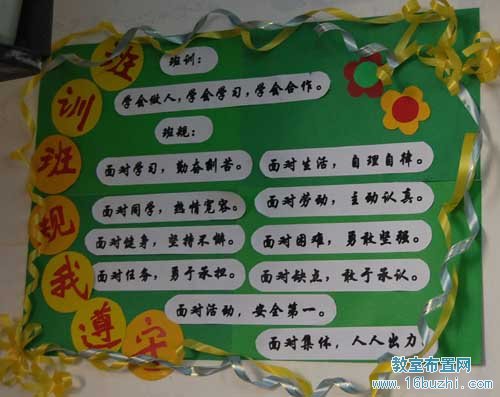 班训班规我遵守
班训：
学会做人，学会学习，学会合作。
班规：
面对学习，勤奋刻苦。
面对生活，自理自律。
面对同学，热情宽容。
面对劳动，主动认真。
面对健身，坚持不懈。
面对困难，勇敢坚强。
面对任务，勇于承担。
面对缺点，敢于承认。
面对活动，安全第一。
面对集体，人人出力。
教室布置网
www.16buzhi.com